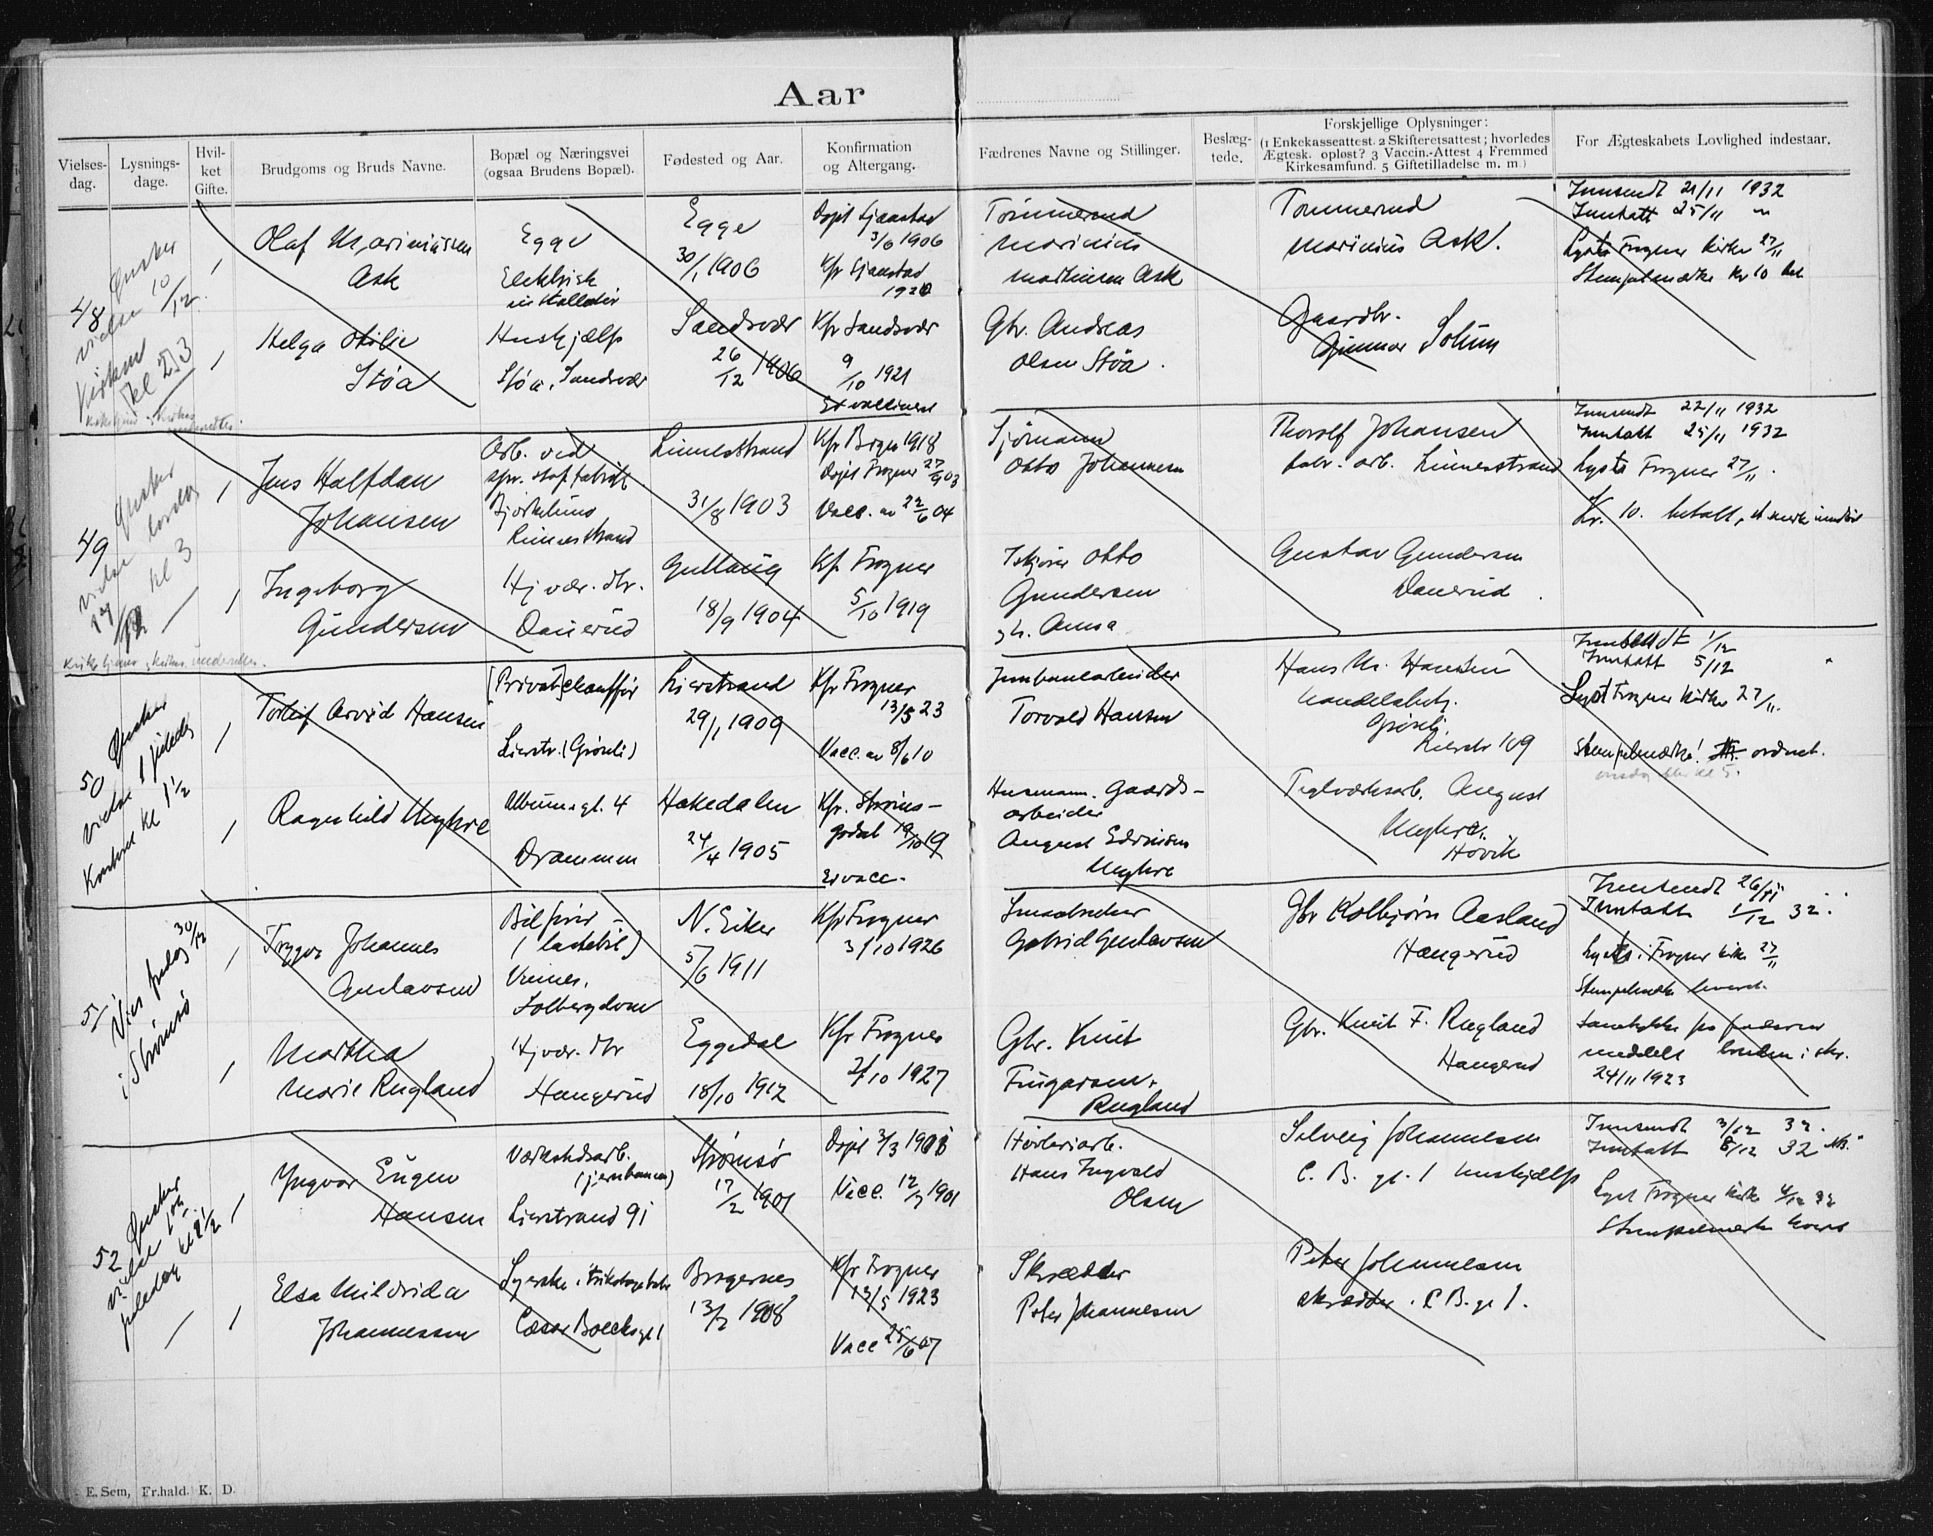 Aar
Vielses-
dag.
Lysnings-
dage.
Hvil-
ket
Gifte.
Brudgoms og Bruds Navne.
Bopæl og Næringsvei
(ogsaa Brudens Bopæl).
Fødested og Aar.
Konfirmation
og Altergang.
Fædrenes Navne og Stillinger.
Beslæg-
tede.
Forskjellige Oplysninger:
(1 Enkekasseattest. 2 Skifteretsattest; hvorledes
Ægtesk. opløst? 3 Vaccin.-Attest 4 Fremmed
Kirkesamfund. 5 Giftetilladelse m. m.)
For Ægteskabets Lovlighed indestaar.
48
Ønsker
vielse 10/12
Kirken
kl 2 3
Olaf Marinius
Ask
Egge
Elektrisk
installatør
Egge
30/1 1906
Døpt Sjåastad
3/6 1906
Kfr Sjaastad
Tømmermd
Marinius
Mathisen Ask
Tømmermd
Marinius Ask.
Innsendt 21/11 1932
Inntatt 25/11
Lyst Frogner Kirke 27/11
Stempelmerke Kr 10 bet
Helga Otilie
Støa
Hushjælp
Støa, Sandsvær
Sandsvær
26/12 1906
Kfr Sandsvær
9/10 1921
Er vaccinert
Gbr. Andreas
Olsen Støa.
Gaardbr.
Gunnar Solum
49
Ønsker
vielse lørdag
kl 3
Jens Halfdan
Johansen
Arb. ved
Linnesstrand
Linnesstrand
31/8 1903
Kfr Brgn 1918
Døpt Frogner 27/9 03
Vacc. av 22/6 04
Sjømann
Otto Johannesen
Thorolf Johansen
fabr. arb. Linnesstrand
Innsendt 22/11 1932
Inntatt 25/11 1932
Lyst Frogner 27/11.
Kr. 10. betalt,
Ingeborg
Gundersen
Hj. vær. dtr.
Dauerud
Gullaug
18/9 1904
Kfr. Frogner
5/10 1919
Otto
Gundersen
Anna
Gustav Gundersen
Dauerud.
50
Ønsker
vielse 1 juledag
Kontoret kl 1 1/2
Torleif Arvid Hansen
[Privat]chauffør
Lierstr. (Grøseli)
Lierstrand
29/1 1909
Kfr Frogner
13/5 23
Vacc. av 8/6 10
Jernbanearbeider
Torvald Hansen
Hans M. Hansen
handelsbetj.
Grøseli
Lierstr 109
Innsendt 1/12
Inntatt 5/12
Lyst Frogner Kirke 27/11.
Stempelmerke! ordnet.
Ragnhild Myhre
Albumsgt. 4
Drammen
Hakedalen
24/4 1905
Kfr. Strøms-
godset 19/10 19
Er vacc.
Husmann. Gaards-
arbeider
August Edvinsen
Myhre
Teglverksarb. August
Myhre,
Høvik
51
Vies fredag 30/12
i Strømsø
Trygve Johannes
Gustavsen
Bilfører
(lastebil)
Vinnes,
N. Eiker
5/6 1911
Kfr Frogner
3/10 1926
Gabriel Gustavsen
Gbr Kolbjørn Aasland
Haugerud
Innsendt 26/11
Inntatt 1/12 32.
Lyst i Frogner kirke 27/11
Stempelmerke levert.
Martha
Marie Rugland
Hj. vær. dtr
Haugerud
Eggedal
18/10 1912
Kfr Frogner
2/10 1927
Gbr. Knut
Fingarsen
Rugland
Gbr. Knut F. Rugland
Haugerud
Samtykke fra faderen
meddelt bruden i skr.
24/11 1923
52
Ønsker
vielse
juledag kl 2 1/2
Yngvar Eugen
Hansen
Værkstedsarb.
(jernbanen)
Lierstrand 91
Strømsø
17/2 1901
Døpt 3/3 1901
Vacc. 12/7 1901
Høvleriarb.
Hans Ingvald
Olsen
Solveig Johannesen
C. B. gt. 1 hushjælp
Innsendt 3/12 32.
Inntatt 8/12 32
Lyst Frogner Kirke 4/12 32
Stempelmerke levert
Elsa Mildrida
Johannessen
Syerske i Trikotagefabr
Cæsar Boecksgt 1
Bragernes
13/2 1908
Kfr Frogner
13/5 1923
Vacc 25/6 07
Skrædder
Peter Johannesen
Peter Johannesen
skrædder. C B. gt 1.
E. Sem, Fr.hald. K. D.